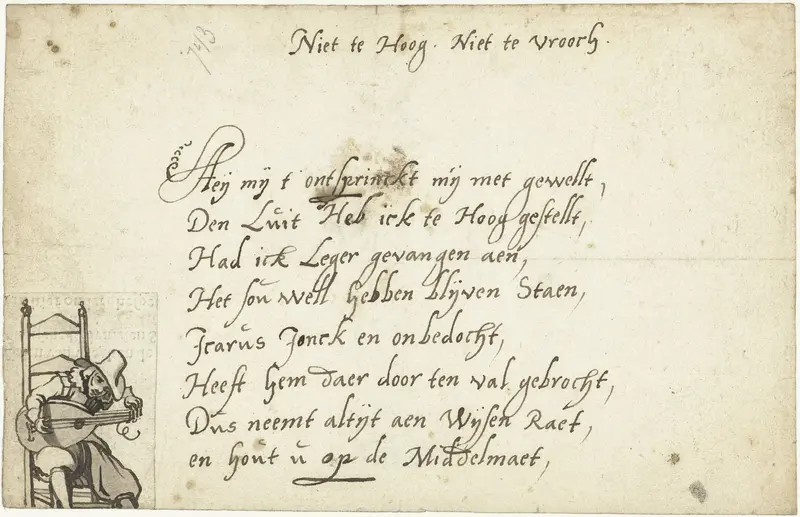 743
Niet te Hoog. Niet te vrooch.
Heij mij t' ontsprinckt mij met gewellt,
Den Luit Heb ick te Hoog gestellt,
Had ick Leger gevangen aen,
Het sou well hebben blijven Staen,
Icarus Jonck en onbedocht,
Heeft hem daer door ten val gebrocht,
Dus neemt altijt aen Wijsen Raet,
en hout u op de Middelmaet,